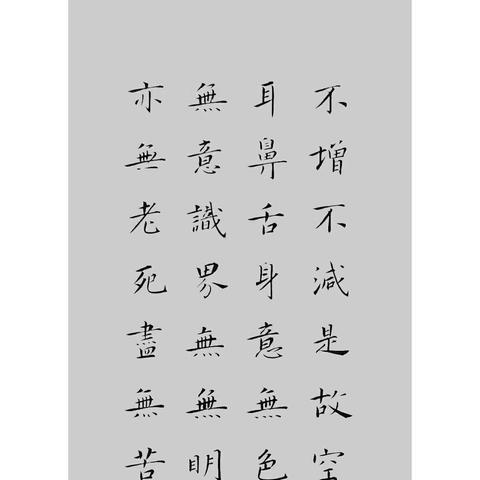 不增不減是故空
耳鼻舌身意無色
無意識界無無明
亦無老死盡無苦